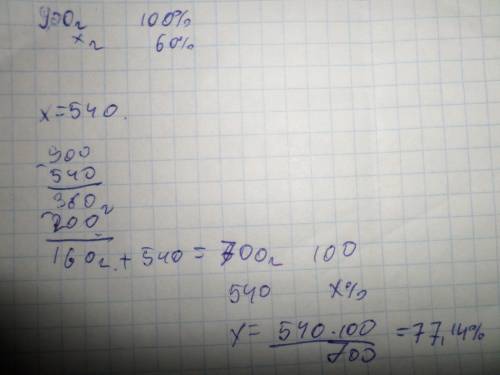 900г 100%
x г 60%
x=540.
900
- 540
360г
- 200
160г. + 540 = 700г 100
540 x%
x = 540.100 = 77,14%
700